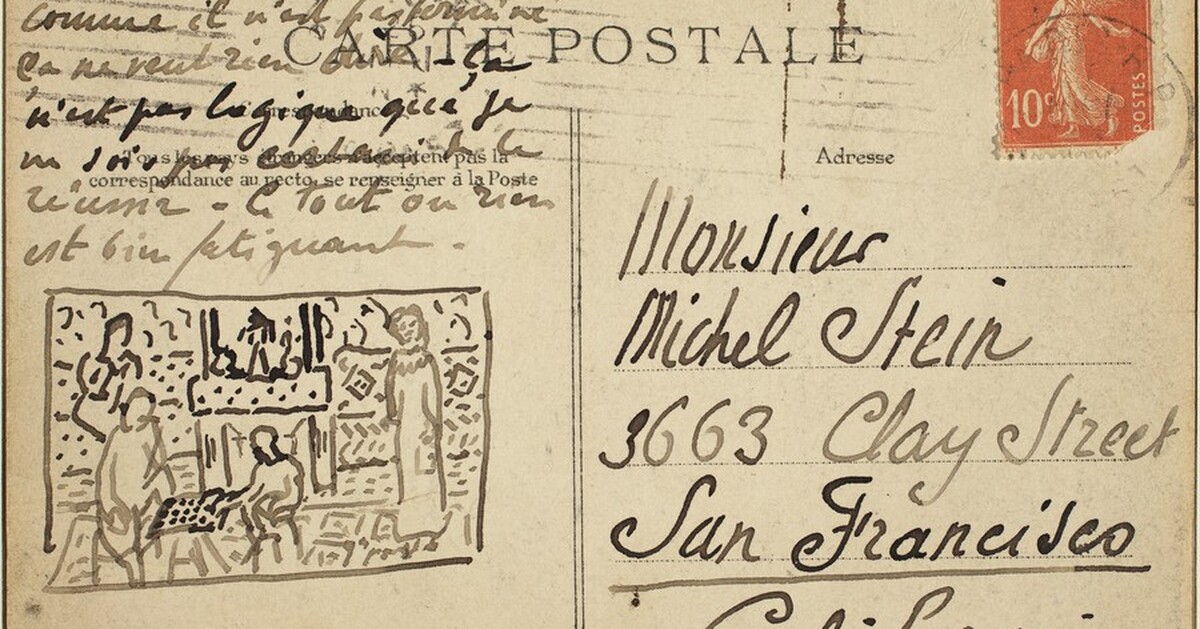 comme il n'est pas terminé
ça ne veut rien dire - ça
n'est pas logique que je
ne sois pas certain de le
réussir - Le Tout ou rien
est bien fatiguant -
CARTE POSTALE
Correspondance
Tous les pays étrangers n'acceptent pas la
correspondance au recto, se renseigner à la Poste
10c
POSTES
Adresse
Monsieur
Michel Stein
3663 Clay Street
San Francisco